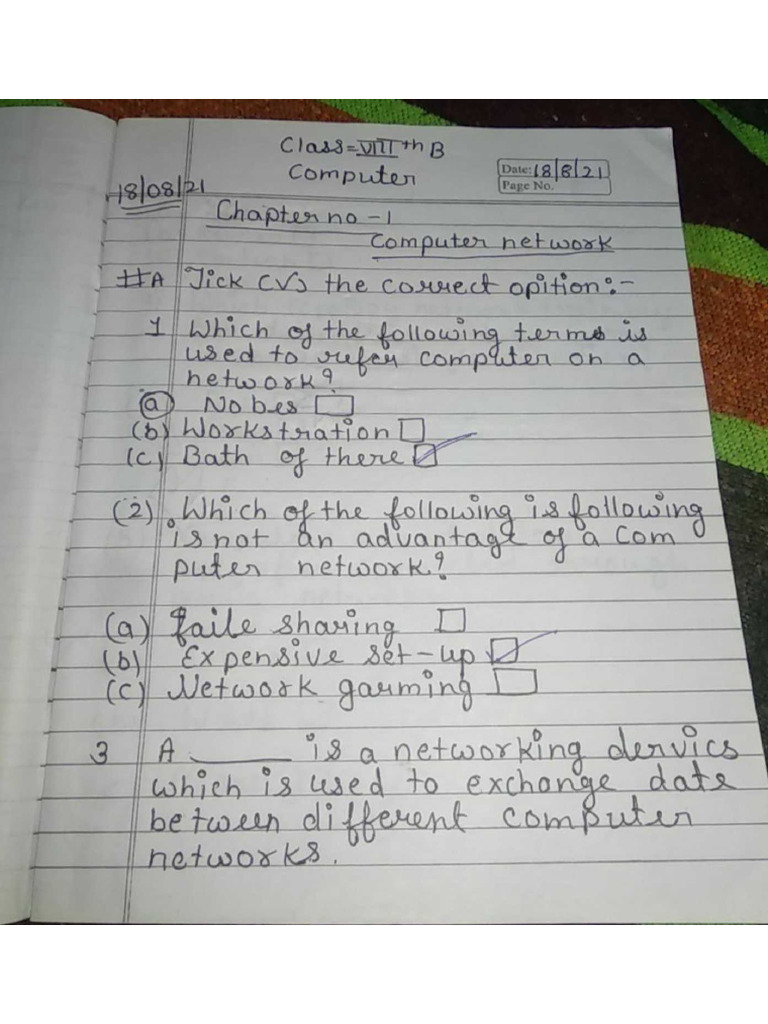 Class=VIIIth B
Computer
Date: 18/8/21
Page No.
18/08/21
Chapter no -1
Computer network
#A Tick (V) the correct opition:-
1 Which of the following terms is
used to refer computer on a
network?
(a) Nobes
(b) Workstration
(c) Bath of there
(2) Which of the following is following
is not an advantage of a com
puter network?
(a) Faile sharing
(b) Expensive set-up
(c) Network garming
3 A ______ is a networking dervics
which is used to exchange date
between different computer
networks.